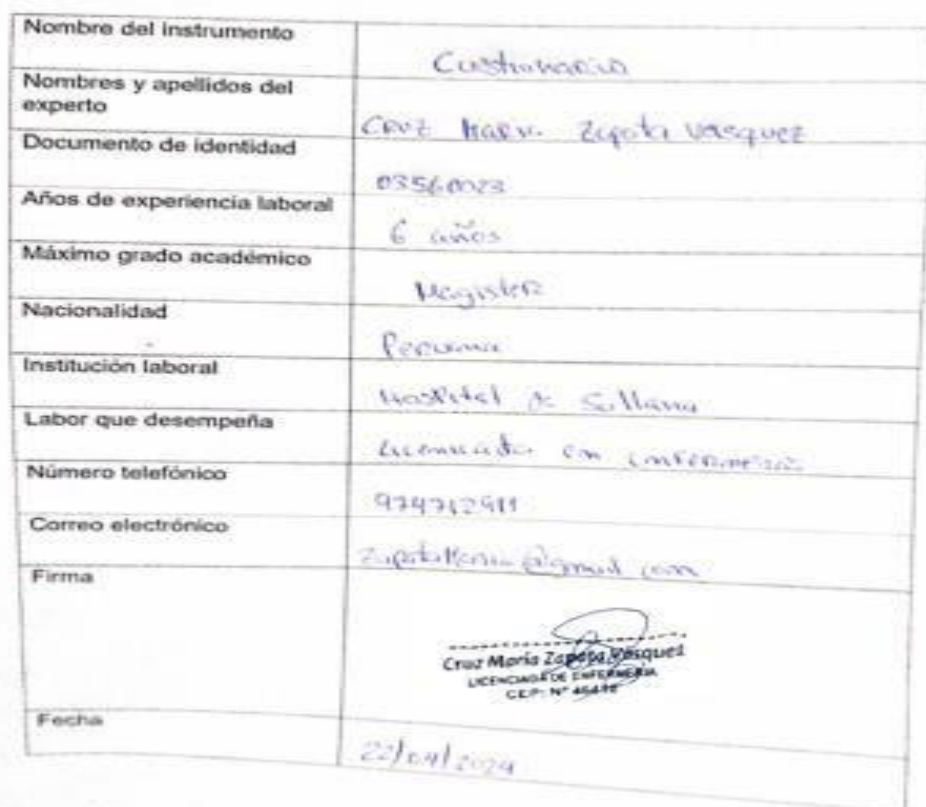 Nombre del instrumento
Cuestionario
Nombres y apellidos del
experto
Cruz María Zapata Vásquez
Documento de identidad
Años de experiencia laboral
6 años
Máximo grado académico
Magister
Nacionalidad
Peruana
Institución laboral
Hospital de Sullana
Labor que desempeña
Licenciada en enfermería
Número telefónico
Correo electrónico
Firma
Cruz María Zapata Vásquez
LICENCIADA DE ENFERMERIA
C.E.P: N°
Fecha
22/04/2024